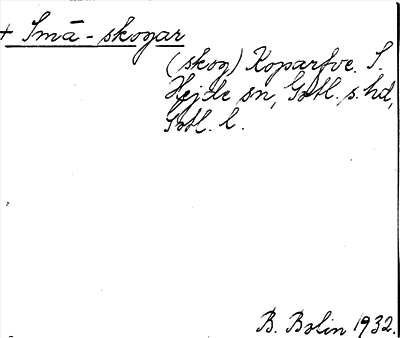 + Små-skogar
(skog) Koparfve. S.
Hejde sn, Gotl. s. hd,
Gotl. l.
B. Bolin 1932.